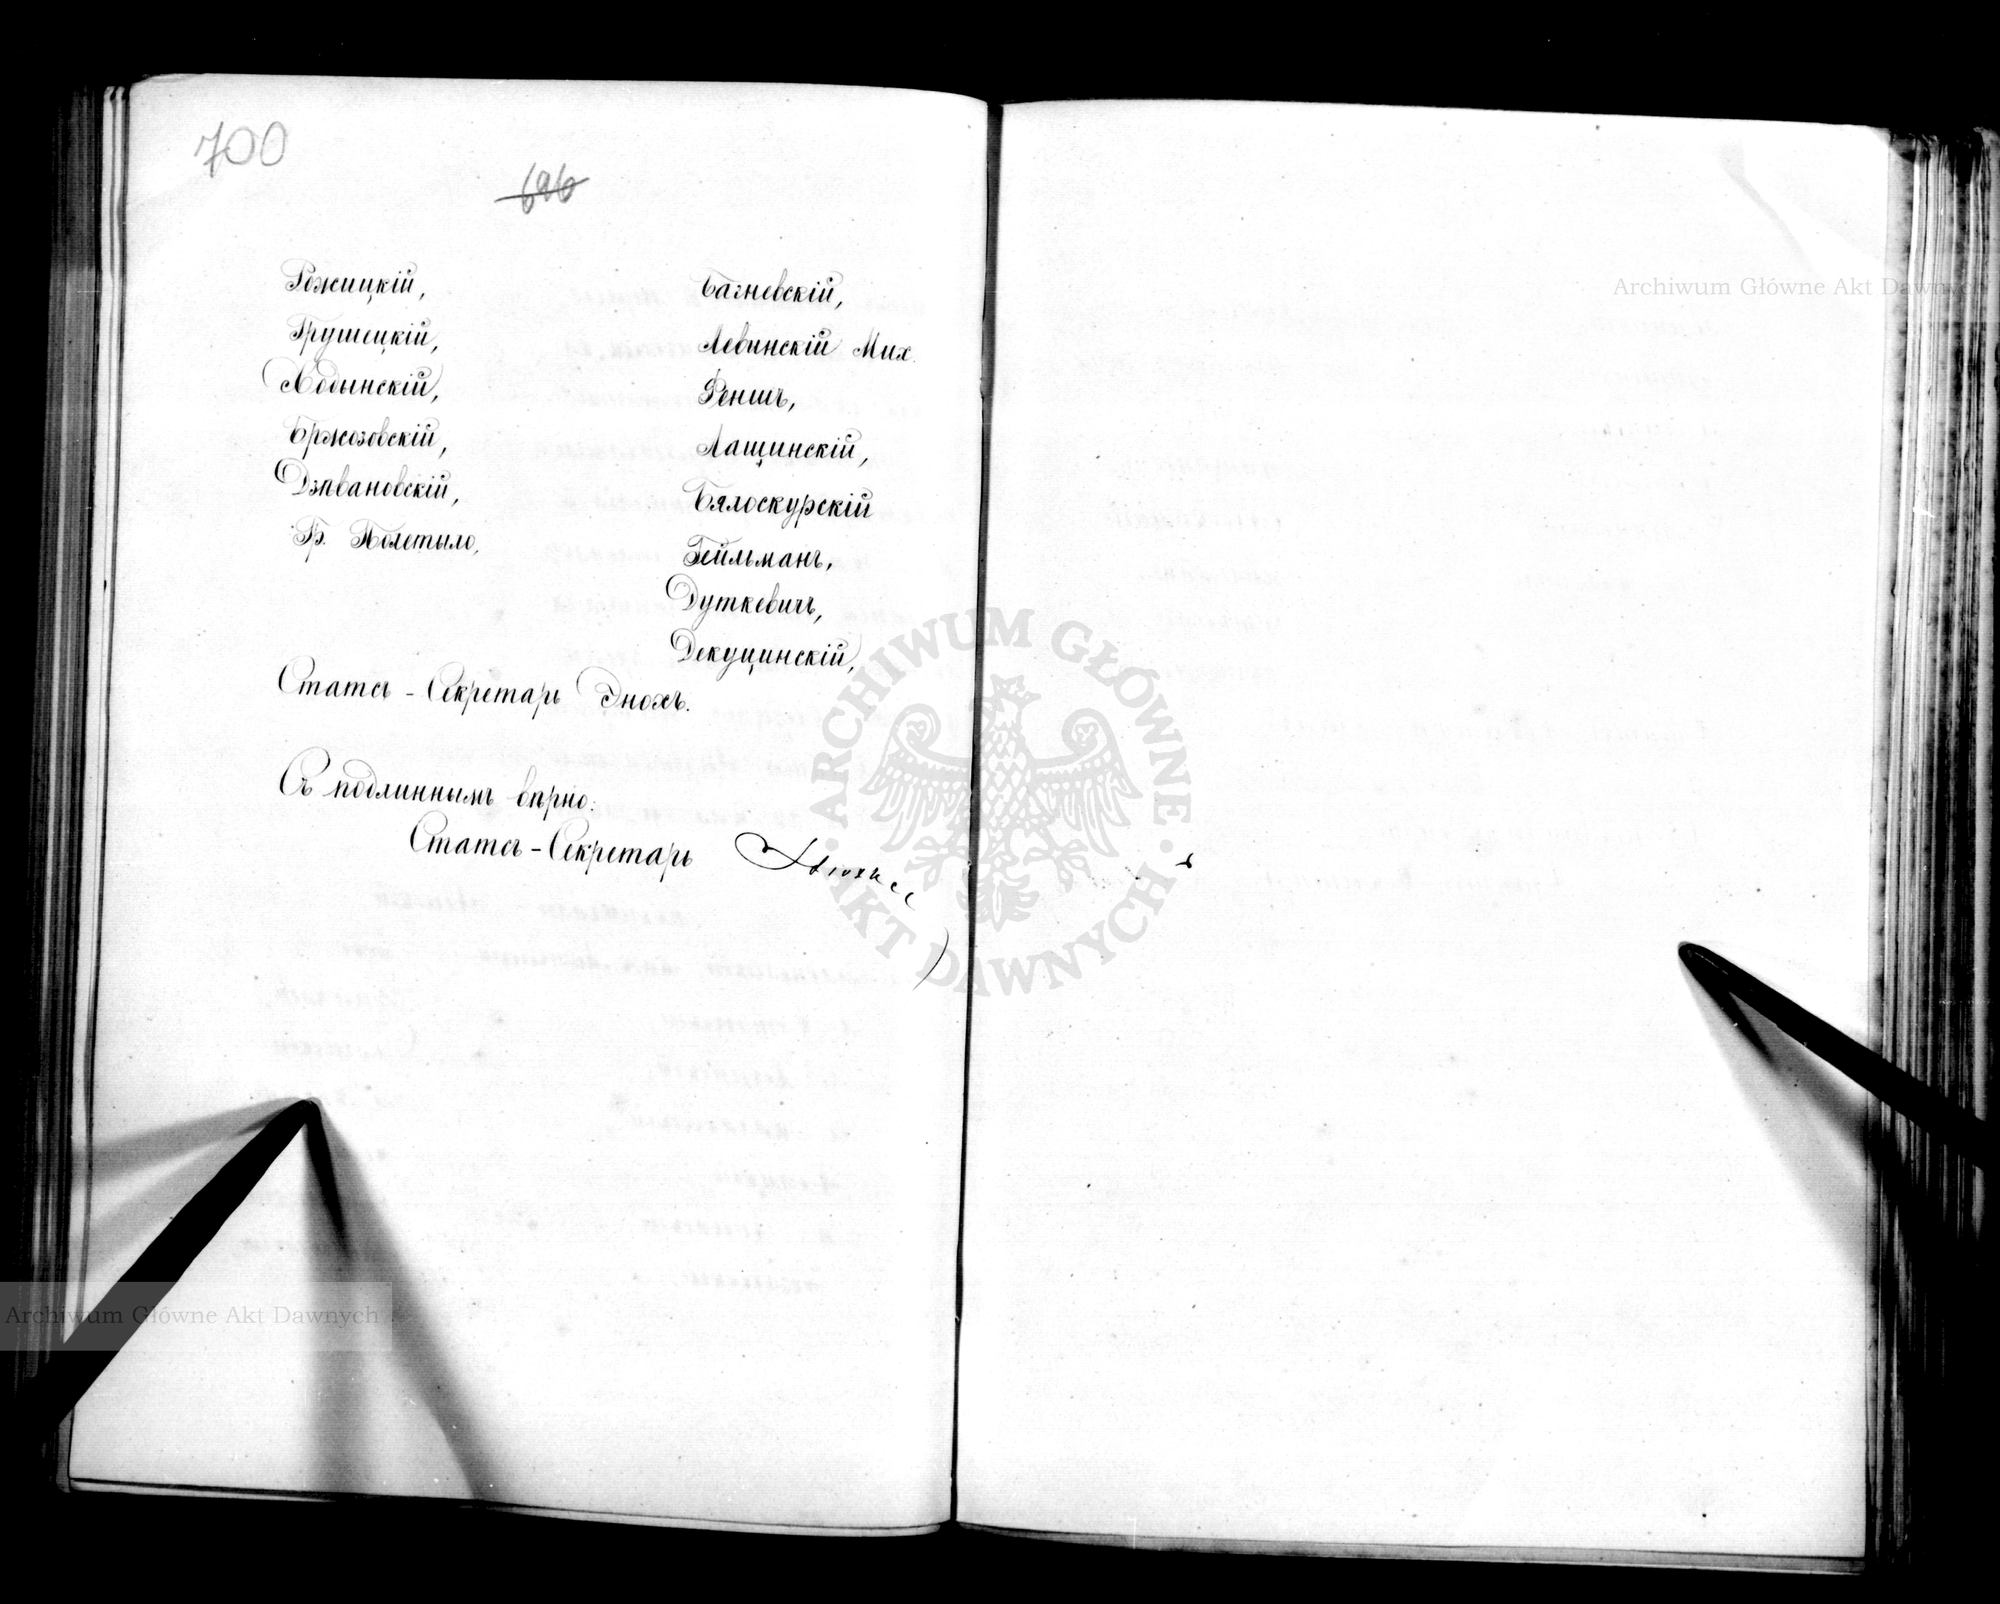 700
696
Рожицкій,
Грушецкій,
Лодынскій,
Бржозовскій,
Дзѣвановскій,
Гр. Полетыло,
Багневскій,
Левинскій Мих.
Феншъ,
Лащинскій,
Бялоскурскій
Гейльманъ,
Дуткевичъ,
Декуцинскій,
Статсъ-Секретарь Энохъ.
Съ подлиннымъ вѣрно:
Статсъ-Секретарь
Archiwum Główne Akt Dawnych
ARCHIWUM GŁÓWNE AKT DAWNYCH
Archiwum Główne Akt Dawnych